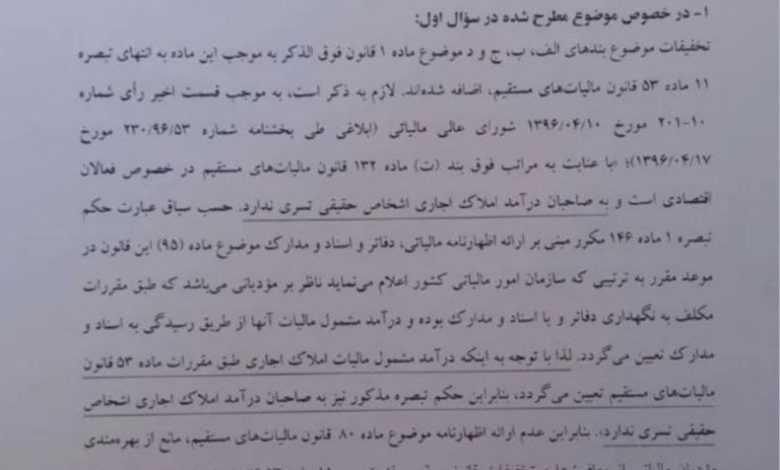 ۱- در خصوص موضوع مطرح شده در سؤال اول:
تخفیفات موضوع بندهای الف، ب، ج و د موضوع ماده ۱ قانون فوق الذکر به موجب این ماده به انتهای تبصره
۱۱ ماده ۵۳ قانون مالیات‌های مستقیم، اضافه شده‌اند. لازم به ذکر است، به موجب قسمت اخیر رأی شماره
۱۰-۲۰۱ مورخ ۱۳۹۶/۰۴/۱۰ شورای عالی مالیاتی (ابلاغی طی بخشنامه شماره ۲۳۰/۹۶/۵۳ مورخ
۱۳۹۶/۰۴/۱۷)؛ «با عنایت به مراتب فوق بند (ت) ماده ۱۳۲ قانون مالیات‌های مستقیم در خصوص فعالان
اقتصادی است و به صاحبان درآمد املاک اجاری اشخاص حقیقی تسری ندارد. حسب سیاق عبارت حکم
تبصره ۱ ماده ۱۴۶ مکرر مبنی بر ارائه اظهارنامه مالیاتی، دفاتر و اسناد و مدارک موضوع ماده (۹۵) این قانون در
موعد مقرر به ترتیبی که سازمان امور مالیاتی کشور اعلام می‌نماید ناظر بر مؤدیانی می‌باشد که طبق مقررات
مکلف به نگهداری دفاتر و یا اسناد و مدارک بوده و درآمد مشمول مالیات آنها از طریق رسیدگی به اسناد و
مدارک تعیین می‌گردد. لذا با توجه به اینکه درآمد مشمول مالیات املاک اجاری طبق مقررات ماده ۵۳ قانون
مالیات‌های مستقیم تعیین می‌گردد، بنابراین حکم تبصره مذکور نیز به صاحبان درآمد املاک اجاری اشخاص
حقیقی تسری ندارد». بنابراین عدم ارائه اظهارنامه موضوع ماده ۸۰ قانون مالیات‌های مستقیم، مانع از بهره‌مندی